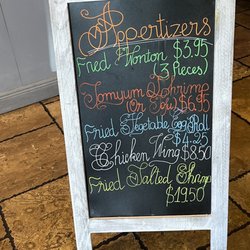 Appertizers
Fried Wonton $3.95
(3 Pieces)
Tomyum Shrimp
(Or Soup) $6.95
Fried Vegetable Egg Roll
$4.25
Chicken Wing $8.50
Fried Salted Shrimp
$19.50